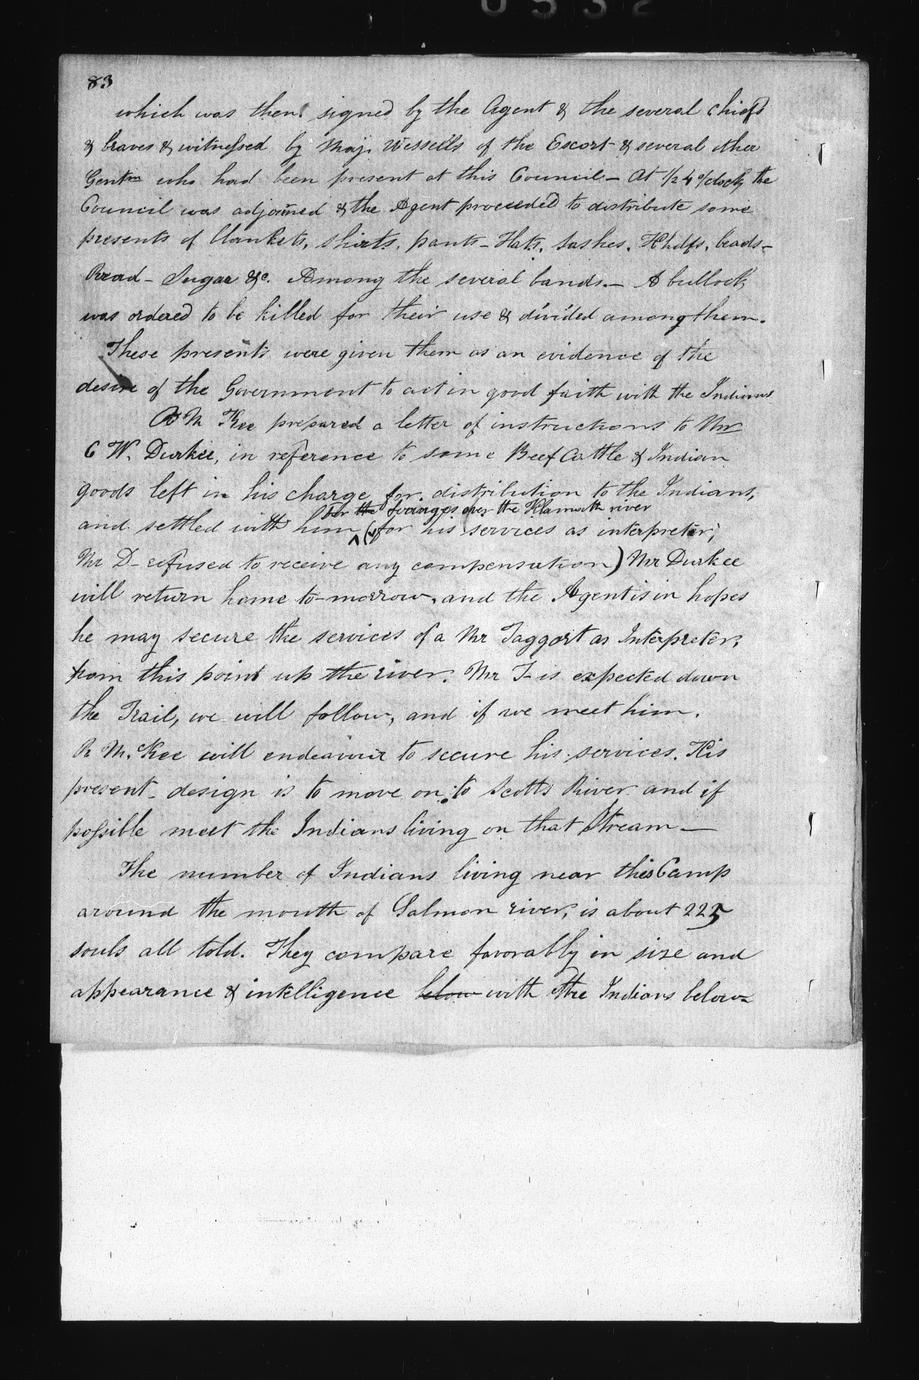 0532
83
which was then signed by the Agent & the several Chiefs
& braves & witnessed by Maj. Wessells of the Escort & several other
Gentm who had been present at this Council - At 1/2 4 o'clock, the
Council was adjorined & the Agent proceeded to distribute some
presents of blankets, shirts, pants - Hats, Sashes, Hkdfs, beads -
Bread - Sugar &c. Among the several bands. - A bullock
was ordered to be killed for their use & divided among them.
These presents were given them as an evidence of the
desire of the Government to act in good faith with the Indians
R McKee prepared a letter of instructions to Mr
C W. Durkee, in reference to some Beef Cattle & Indian
goods left in his charge for distribution to the Indians,
for the ferriages over the Klamath river
and settled with him (for his services as interpreter,
Mr D- refused to receive any compensation) Mr Durkee
will return home to-morrow, and the Agent is in hopes
he may secure the services of a Mr Taggort as Interpreter,
from this point up the river. Mr T- is expected down
the Trail, we will follow, and if we meet him.
R McKee will endeavour to secure his services. His
present design is to move on to Scotts River and if
possible meet the Indians living on that Stream -
The number of Indians living near this Camp
around the mouth of Salmon river, is about 225
souls all told. They compare favorably in size and
appearance & intelligence below with the Indians below